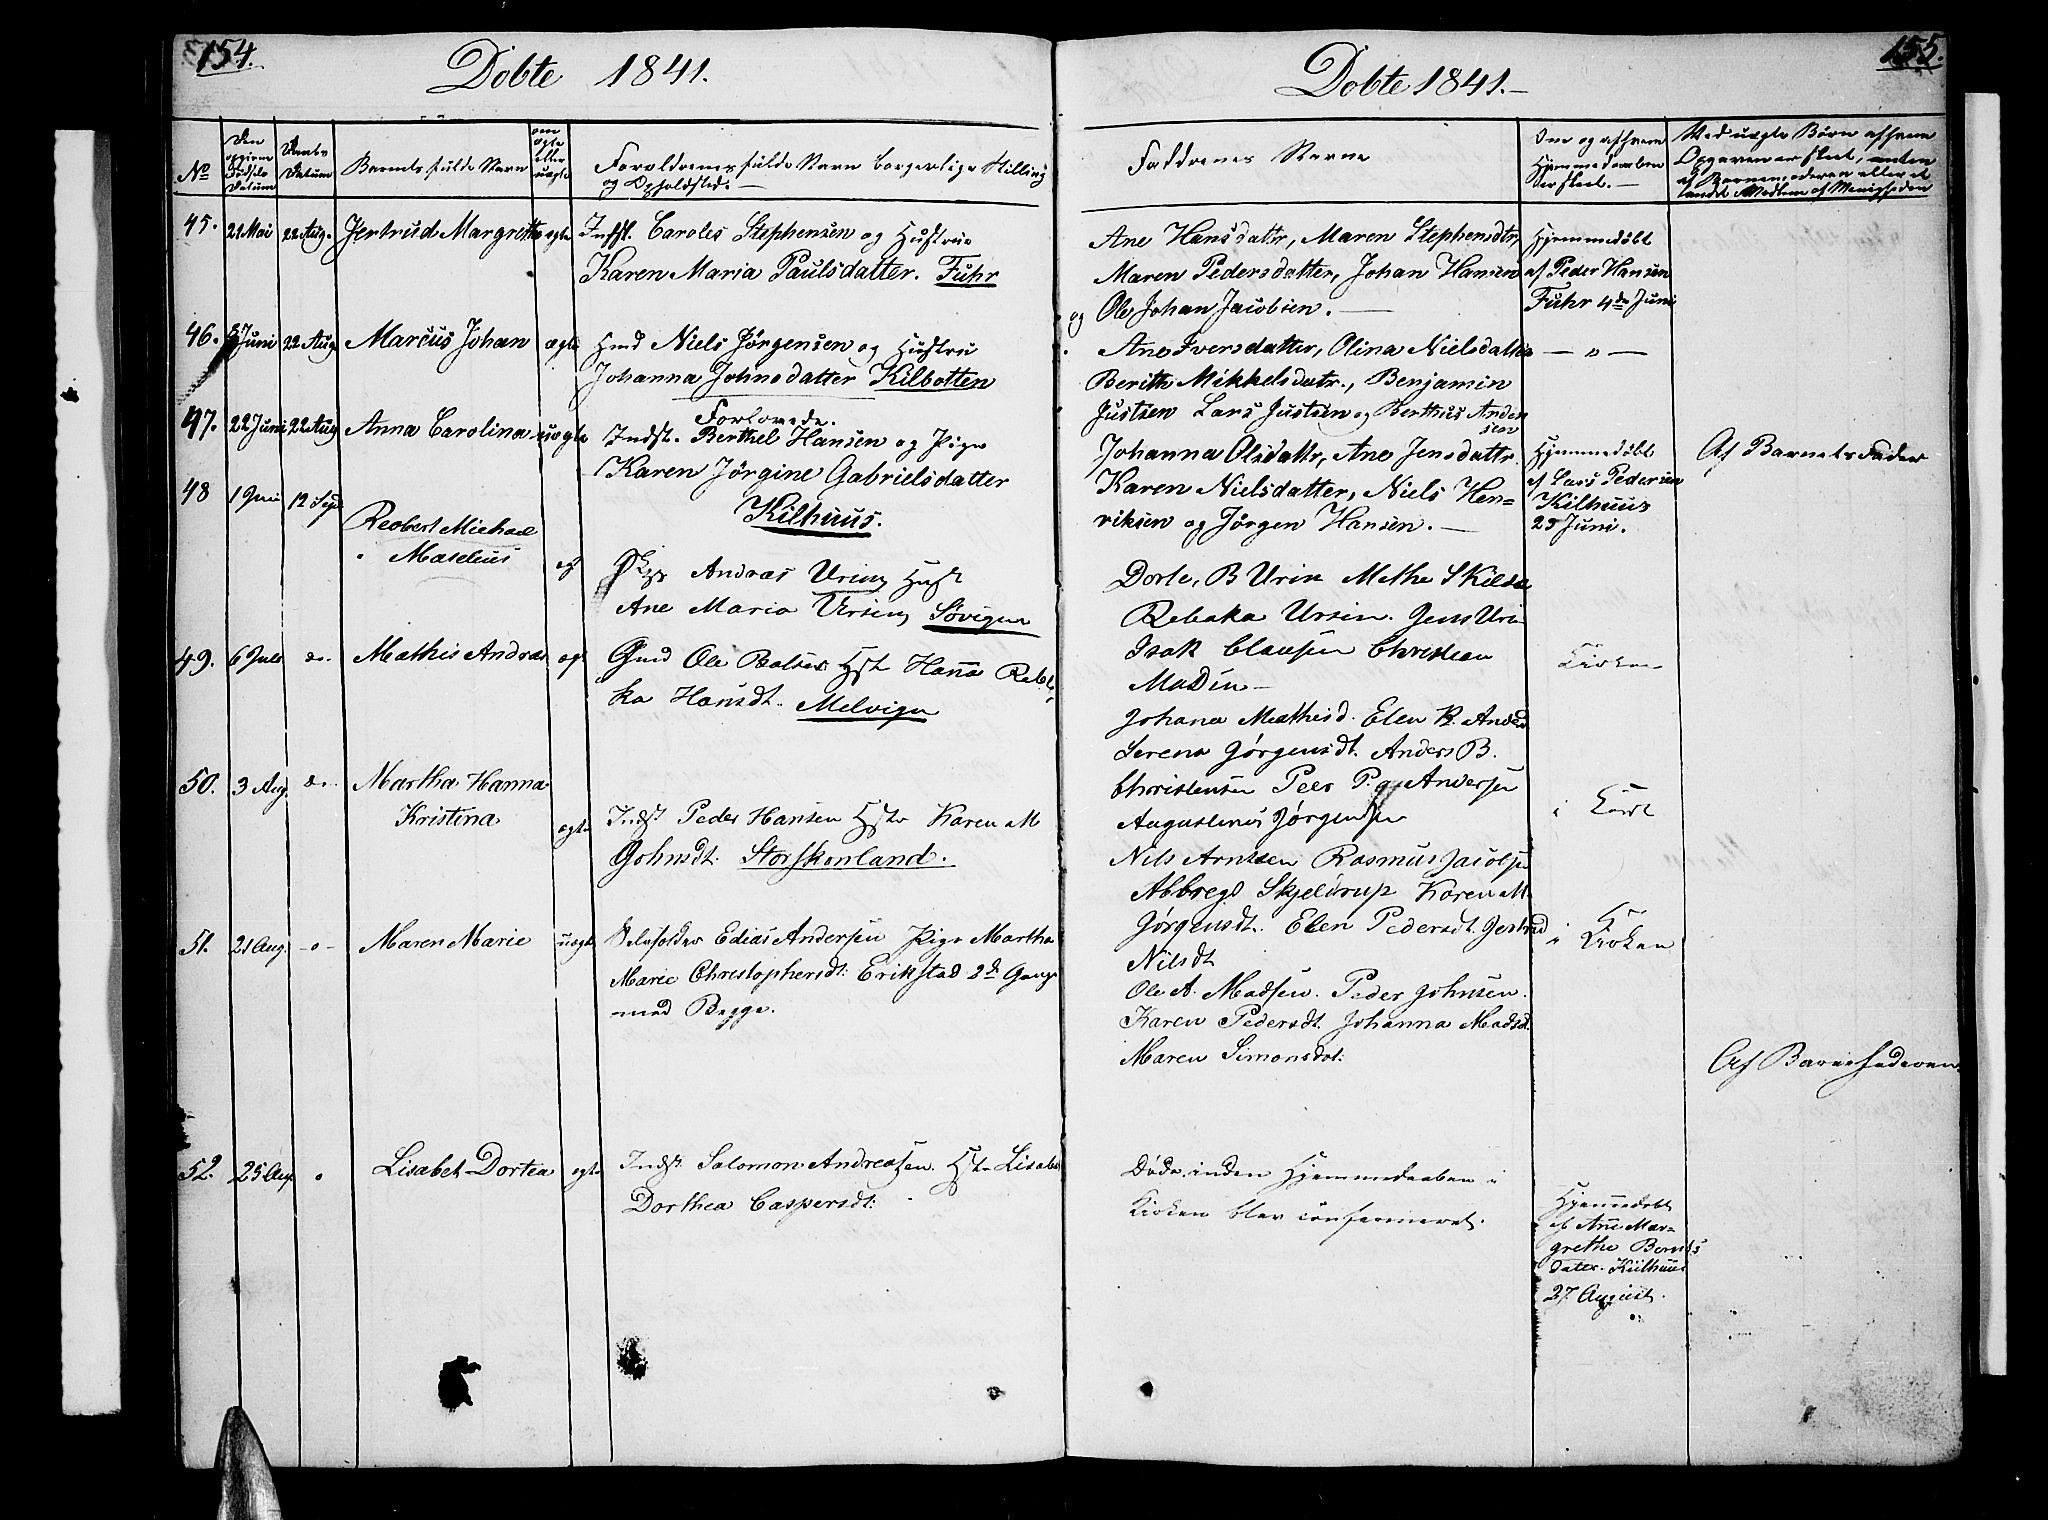 154.
Døbte 1841.
No
Den
opgivne
Fødsels
Datum
Daabs
Datum
Barnets fulde Navn
om
ægte
eller
uægte
Forældrenes fulde Navn borgerlige Stilling
og Opholdsted.
45. 21 Mai 22 Aug. Jertrud Margrethe ægte Indst. Caroles Stephensen og Hustrue
Karen Maria Paulsdatter. Fuhr
46. Juni 22 Aug Marcus Johan ægte Gmd Niels Jørgensen og Hustru
Johanna Johnsdatter Kilbotten
Forlovede.
47. 22 Juni 22 Aug Anna Carolina uægte Indst. Berthel Hansen og Pige
Karen Jørgine Gabrielsdatter
Kilhuus.
48 1 Juni 12 Sept
Reobert Michael
Maselius
Andreas Ursin Hust
Ane Maria Ursin Søvigen
49. 6 Juli do. Mathis Andreas ægt Gmd Ole Balser Hst Hanna Rebe
ka Hansdt. Melvigen
50. 3 Aug. do. Martha Hanna
Kristina
ægte Indst Peder Hansen Hstr Karen M
Johnsdt. Storskonland.
51. 21 Aug. -o- Maren Marie uægte Edias Andersen Pige Martha
Marie Christophersdt: Erikstad 2d Gang
med Begge.
52. 25 Aug. o Lisabet Dortea ægte Indst. Salomon Andreassen. Hstr Lisabe
Dorthea Caspersdt:
155.
Døbte 1841.
Faddrenes Navne
Om og af hvem
Hjemmedaaben
er skeet.
Ved uægte Børn af hvem
Opgaven er skeet, enten
af Barnemoderen eller et
andet Medlem af Menigheden
Ane Hansdattr, Maren Stephensdtr,
Maren Pedersdatter, Johan Hansen
og Ole Johan Jacobsen.
Hjemmedøbt
af Peder Hansen
Fuhr 4de Juni
Ane Iversdatter, Olina Nielsdatter
Berith Mikkelsdatr., Benjamin
Justsen Lars Justsen og Berthus Anders
sen
— " —
Johanna Olsdattr, Ane Jensdattr
Karen Nielsdatter, Niels Hen-
riksen og Jørgen Hansen.
Hjemmedøbt
af Lars Pedersen
Kilhuus
23 Juni.
Af Barnets Fader
Dorte, B Urin Methe Skilda
Rebeka Ursin. Jens Ursi
Isak Clausen Christian
Madsen
Kirken
Johana Mathisd. Elen B. Anders
Serena Jørgensdt. Anders B.
Christensen Peer P. og Andersen
Augustinus Jørgensen
i Kirk
Nils Arntsen Rasmus Jacobsen
Abbregd Skjeldrup Karen M.
Jørgensdt. Elen Pedersdt. Jertrud
Nilsdt
i Kirken
Ole A. Madsen. Peder Johnsen.
Karen Pedersdt. Johanna Madsdt.
Maren Simonsdt:
Af Barnefaderen
Døde inden Hjemmedaaben i
Kirken blev confirmeret.
Hjemmedøbt
af Ane Mar-
grethe Bernts
dater. Kiilhuus
27. August.